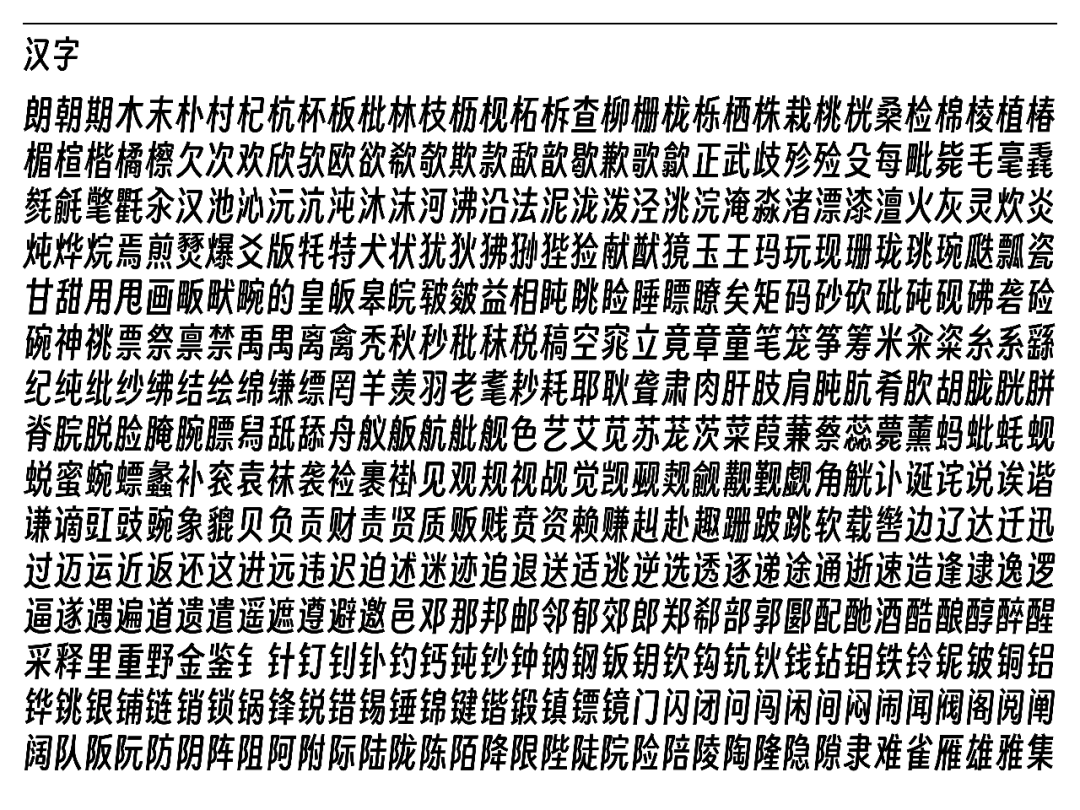 汉字
朗朝期木末朴村杞杭杯板枇林枝枥枧柘柝查柳栅栊栎栖株栽桃桄桑检棉棱植椿
楣楦楷橘檫欠次欢欣欤欧欲欷欹欺款歃歆歇歉歌歙正武歧殄殓殳每毗毙毛毫毳
毵毹氅氍氽汉池沁沅沆沌沐沫河沸沿法泥泷泼泾洮浣淹淼渚漂漆澶火灰灵炊炎
炖烨烷焉煎燹爆爻版牦特犬状犹狄狒狲狴猃献猷獍玉王玛玩现珊珑珧琬瓞瓢瓷
甘甜用甩画畈畎畹的皇皈皋皖皲皴益相盹眺睑睡瞟瞭矣矩码砂砍砒砘砚砩砻硷
碗神祧票祭禀禁禹禺离禽秃秋秒秕秣税稿空窕立竟章童笔笼筝筹米籴粢糸系繇
纪纯纰纱绋结绘绵缣缥罔羊羡羽老耄耖耗耶耿聋肃肉肝肢肩肫肮肴肷胡胧胱胼
脊脘脱脸腌腕膘舄舐舔舟舣舨航舭舰色艺艾苋苏茏茨菜葭蒹蔡蕊薨薰蚂蚍蚝蚬
蜕蜜蜿螵蠡补衮袁袜袭裣裹褂见观规视觇觉觊觋觌觎觏觐觑角觥讣诞诧说诶谐
谦谪豇豉豌象貔贝负贡财责贤质贩贱贲资赖赚赳赴趣跚跛跳软载辔边辽达迁迅
过迈运近返还这进远违迟迫述迷迹追退送适逃逆选透逐递途通逝速造逢逮逸逻
逼遂遇遍道遗遣遥遮遵避邀邑邓那邦邮邻郁郊郎郑郗部郭鄾配酏酒酷酿醇醉醒
采释里重野金鉴钅针钉钊钋钓钙钝钞钟钠钢钣钥钦钩钪钬钱钻钼铁铃铌铍铜铝
铧铫银铺链销锁锅锋锐错锡锤锦键锴锻镇镖镜门闪闭问闯闲间闷闹闻阀阁阅阐
阔队阪阮防阴阵阻阿附际陆陇陈陌降限陛陡院险陪陵陶隆隐隙隶难雀雁雄雅集